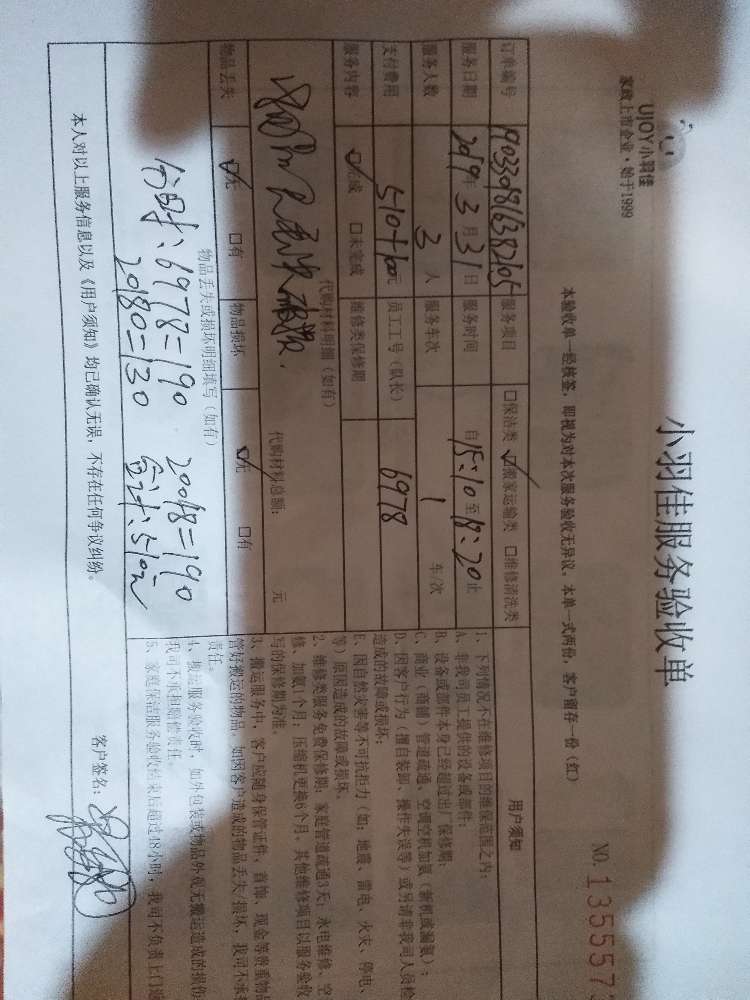 小羽佳服务验收单
UJOY小羽佳
家政上市企业·始于1999
NO. 135557
本验收单一经核签，即视为对本次服务验收无异议。本单一式两份，客户留存一份（红）
订单编号
服务项目 □保洁类 ☑搬家运输类 □维修清洗类
服务日期 2019年3月31日 服务时间 自15:10至18:20止
服务人数 3人 服务车次 1 车/次
支付费用 510+100元 员工工号（队长） 6978
服务内容 ☑完成 □未完成 维修类保修期
代购材料明细（如有）
代购材料总额： 元
物品丢失 ☑无 □有 物品损坏 ☑无 □有
物品丢失或损坏明细填写（如有）
分时：6978=190 20098=190
20180=130 合计：510元
用户须知
1、下列情况不在维修项目的维保范围之内：
A、非我司员工提供的设备或部件；
B、设备或部件本身已经超过出厂保修期；
C、商业（商铺）管道疏通、空调空机加氨（新机或漏氨）；
D、因客户行为（擅自装卸、操作失误等）或另请非我司人员检
造成的故障或损坏；
E、因自然灾害等不可抗拒力（如：地震、雷电、火灾、停电、
等）原因造成的故障或损坏。
2、维修类服务免费保修期：家庭管道疏通3天；水电维修、空
修、加氨1个月；压缩机更换6个月，其他维修项目以服务验收
写的保修期为准。
3、搬运服务中，客户应随身保管证件、首饰、现金等贵重物品
管好搬运的物品，如因客户造成的物品丢失/损坏，我司不承担
责任。
4、搬运服务验收时，如外包装或物品外观无搬运造成的损伤
我司不承担赔偿责任。
5、家庭保洁服务验收结束后超过48小时，我司不负责上门返
本人对以上服务信息以及《用户须知》均已确认无误，不存在任何争议纠纷。
客户签名：